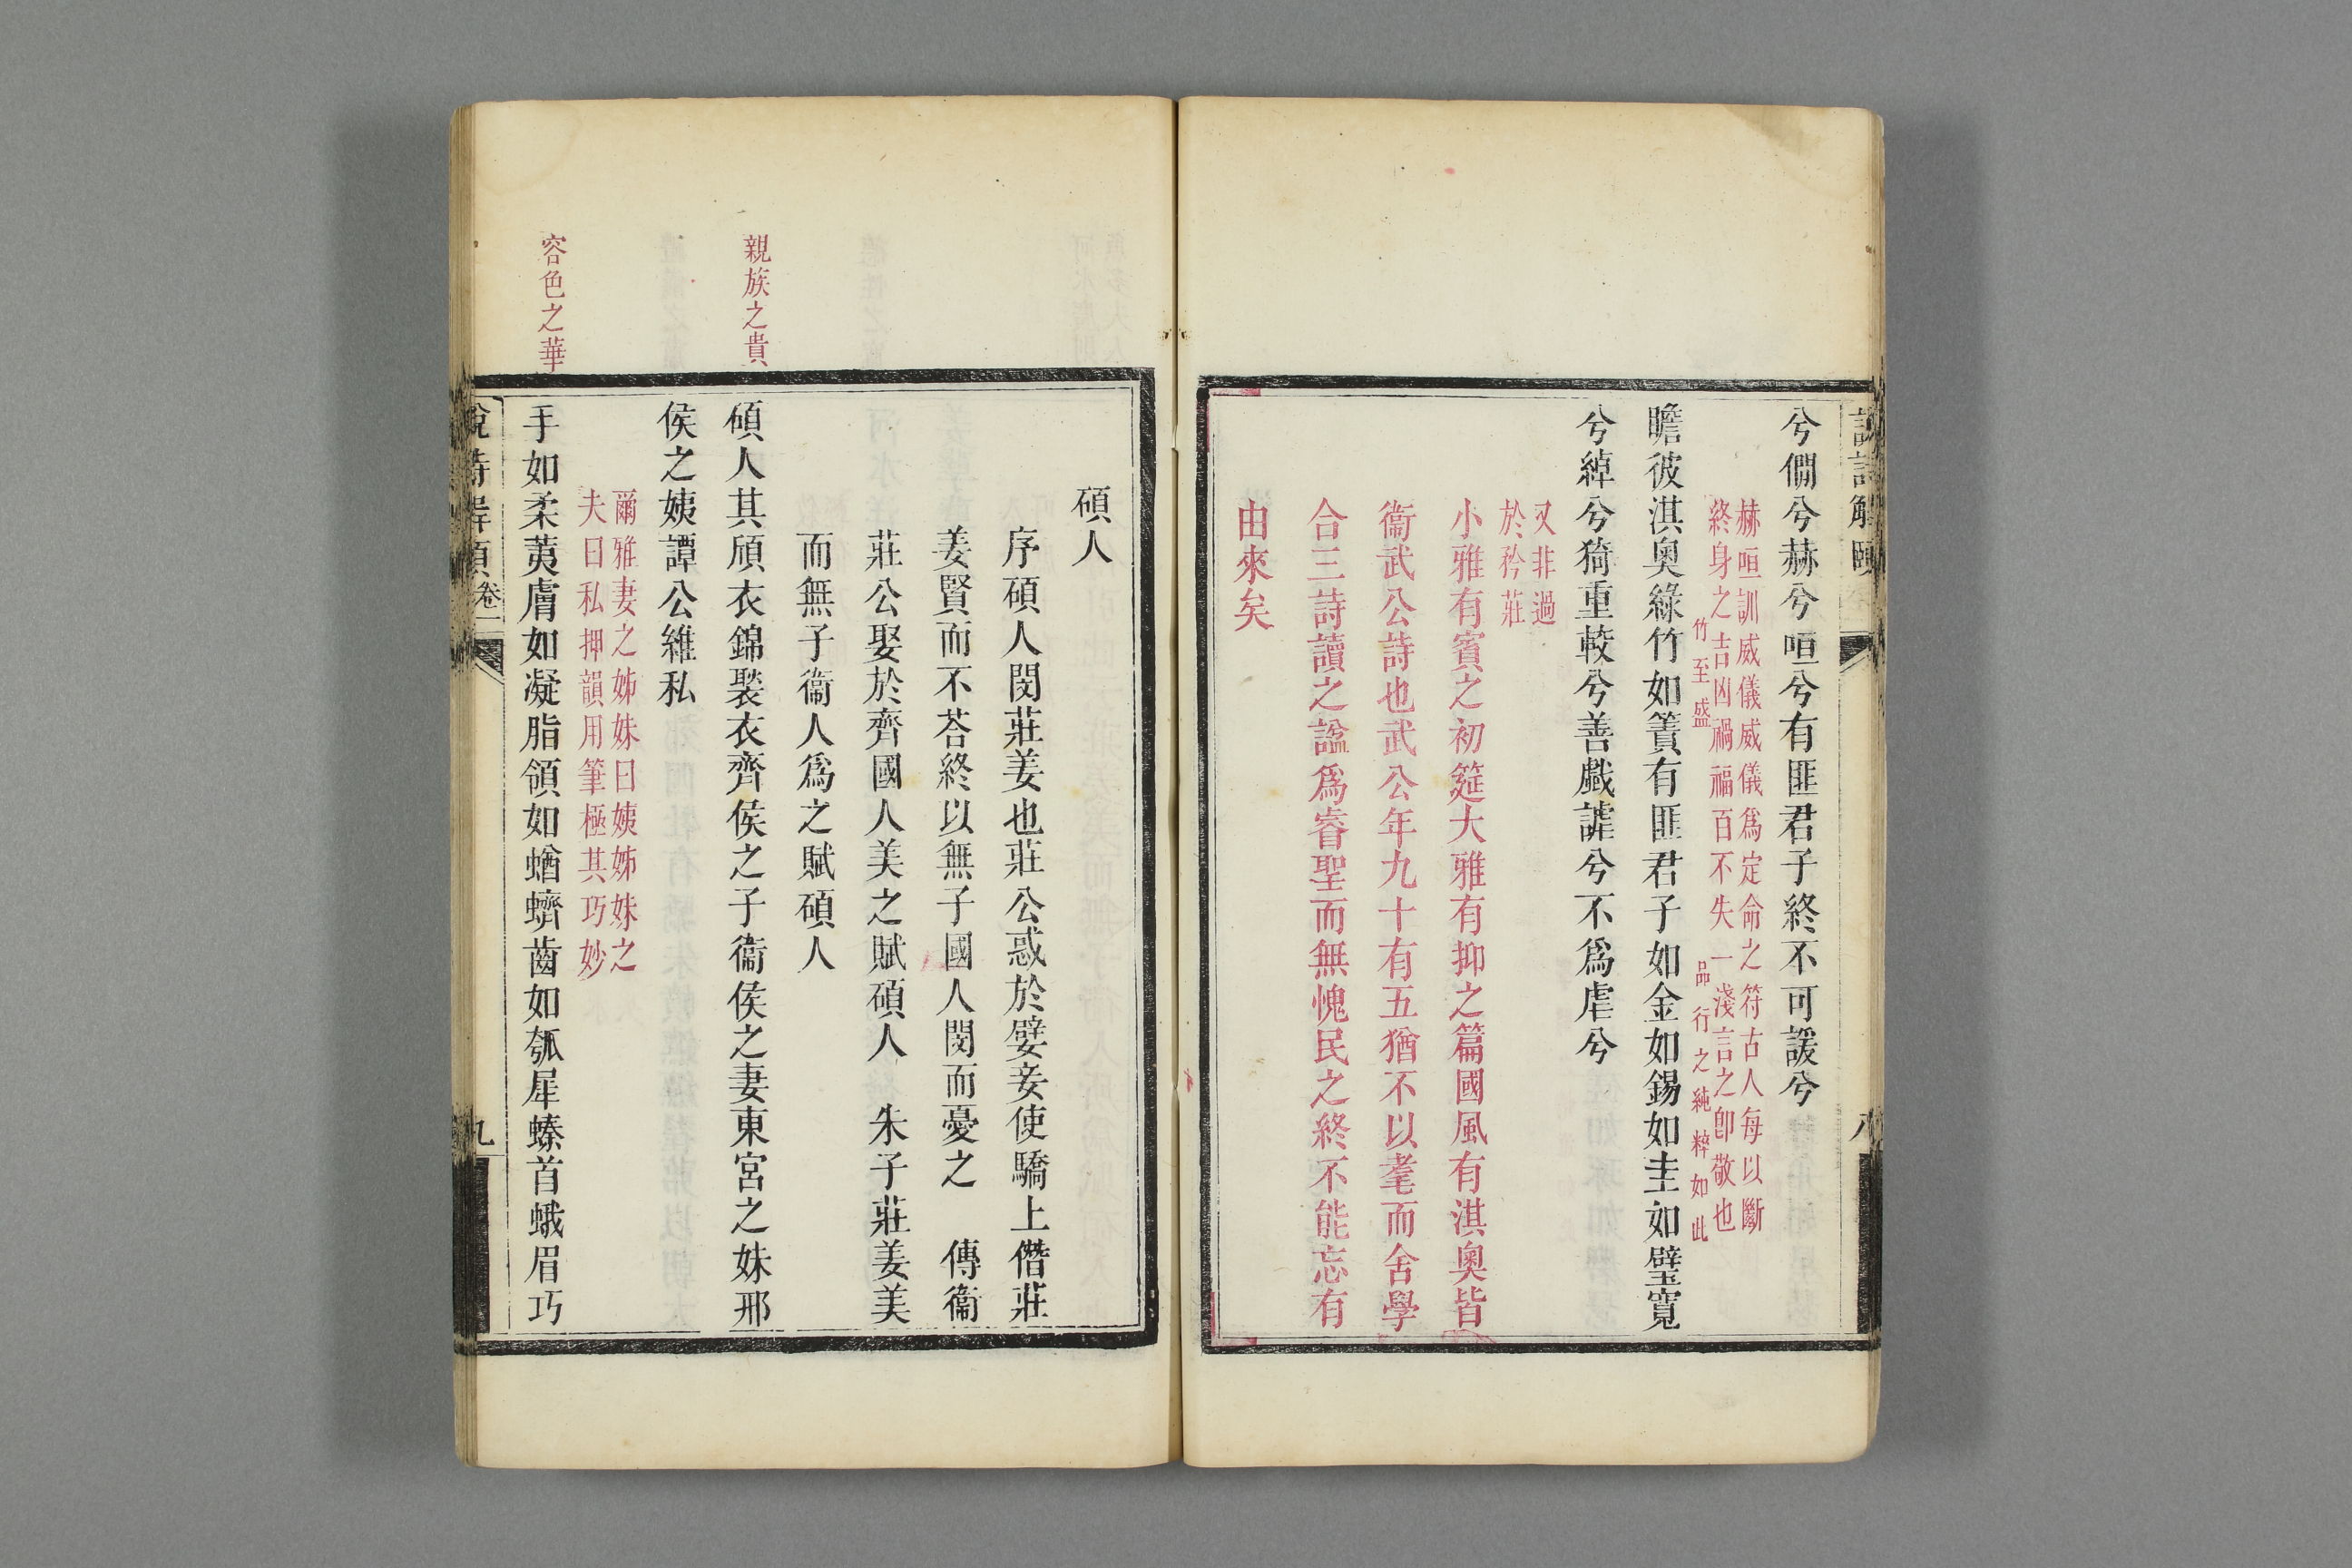 兮僩兮赫兮咺兮有匪君子終不可諼兮
赫咺訓威儀威儀爲定命之符古人每以斷
終身之吉凶禍福百不失一淺言之卽敬也
竹至盛
品行之純粹如此
瞻彼淇奧綠竹如簀有匪君子如金如錫如圭如璧寬
兮綽兮猗重較兮善戲謔兮不爲虐兮
又非過
於矜莊
小雅有賓之初筵大雅有抑之篇國風有淇奧皆
衞武公詩也武公年九十有五猶不以耄而舍學
合三詩讀之諡爲睿聖而無愧民之終不能忘有
由來矣
碩人
序碩人閔莊姜也莊公惑於嬖妾使驕上僭莊
姜賢而不荅終以無子國人閔而憂之 傳衞
莊公娶於齊國人美之賦碩人 朱子莊姜美
而無子衞人爲之賦碩人
親族之貴
碩人其頎衣錦褧衣齊侯之子衞侯之妻東宮之妹邢
侯之姨譚公維私
爾雅妻之姊妹曰姨姊妹之
夫曰私押韻用筆極其巧妙
容色之華
手如柔荑膚如凝脂領如蝤蠐齒如瓠犀螓首蛾眉巧
卷二
九